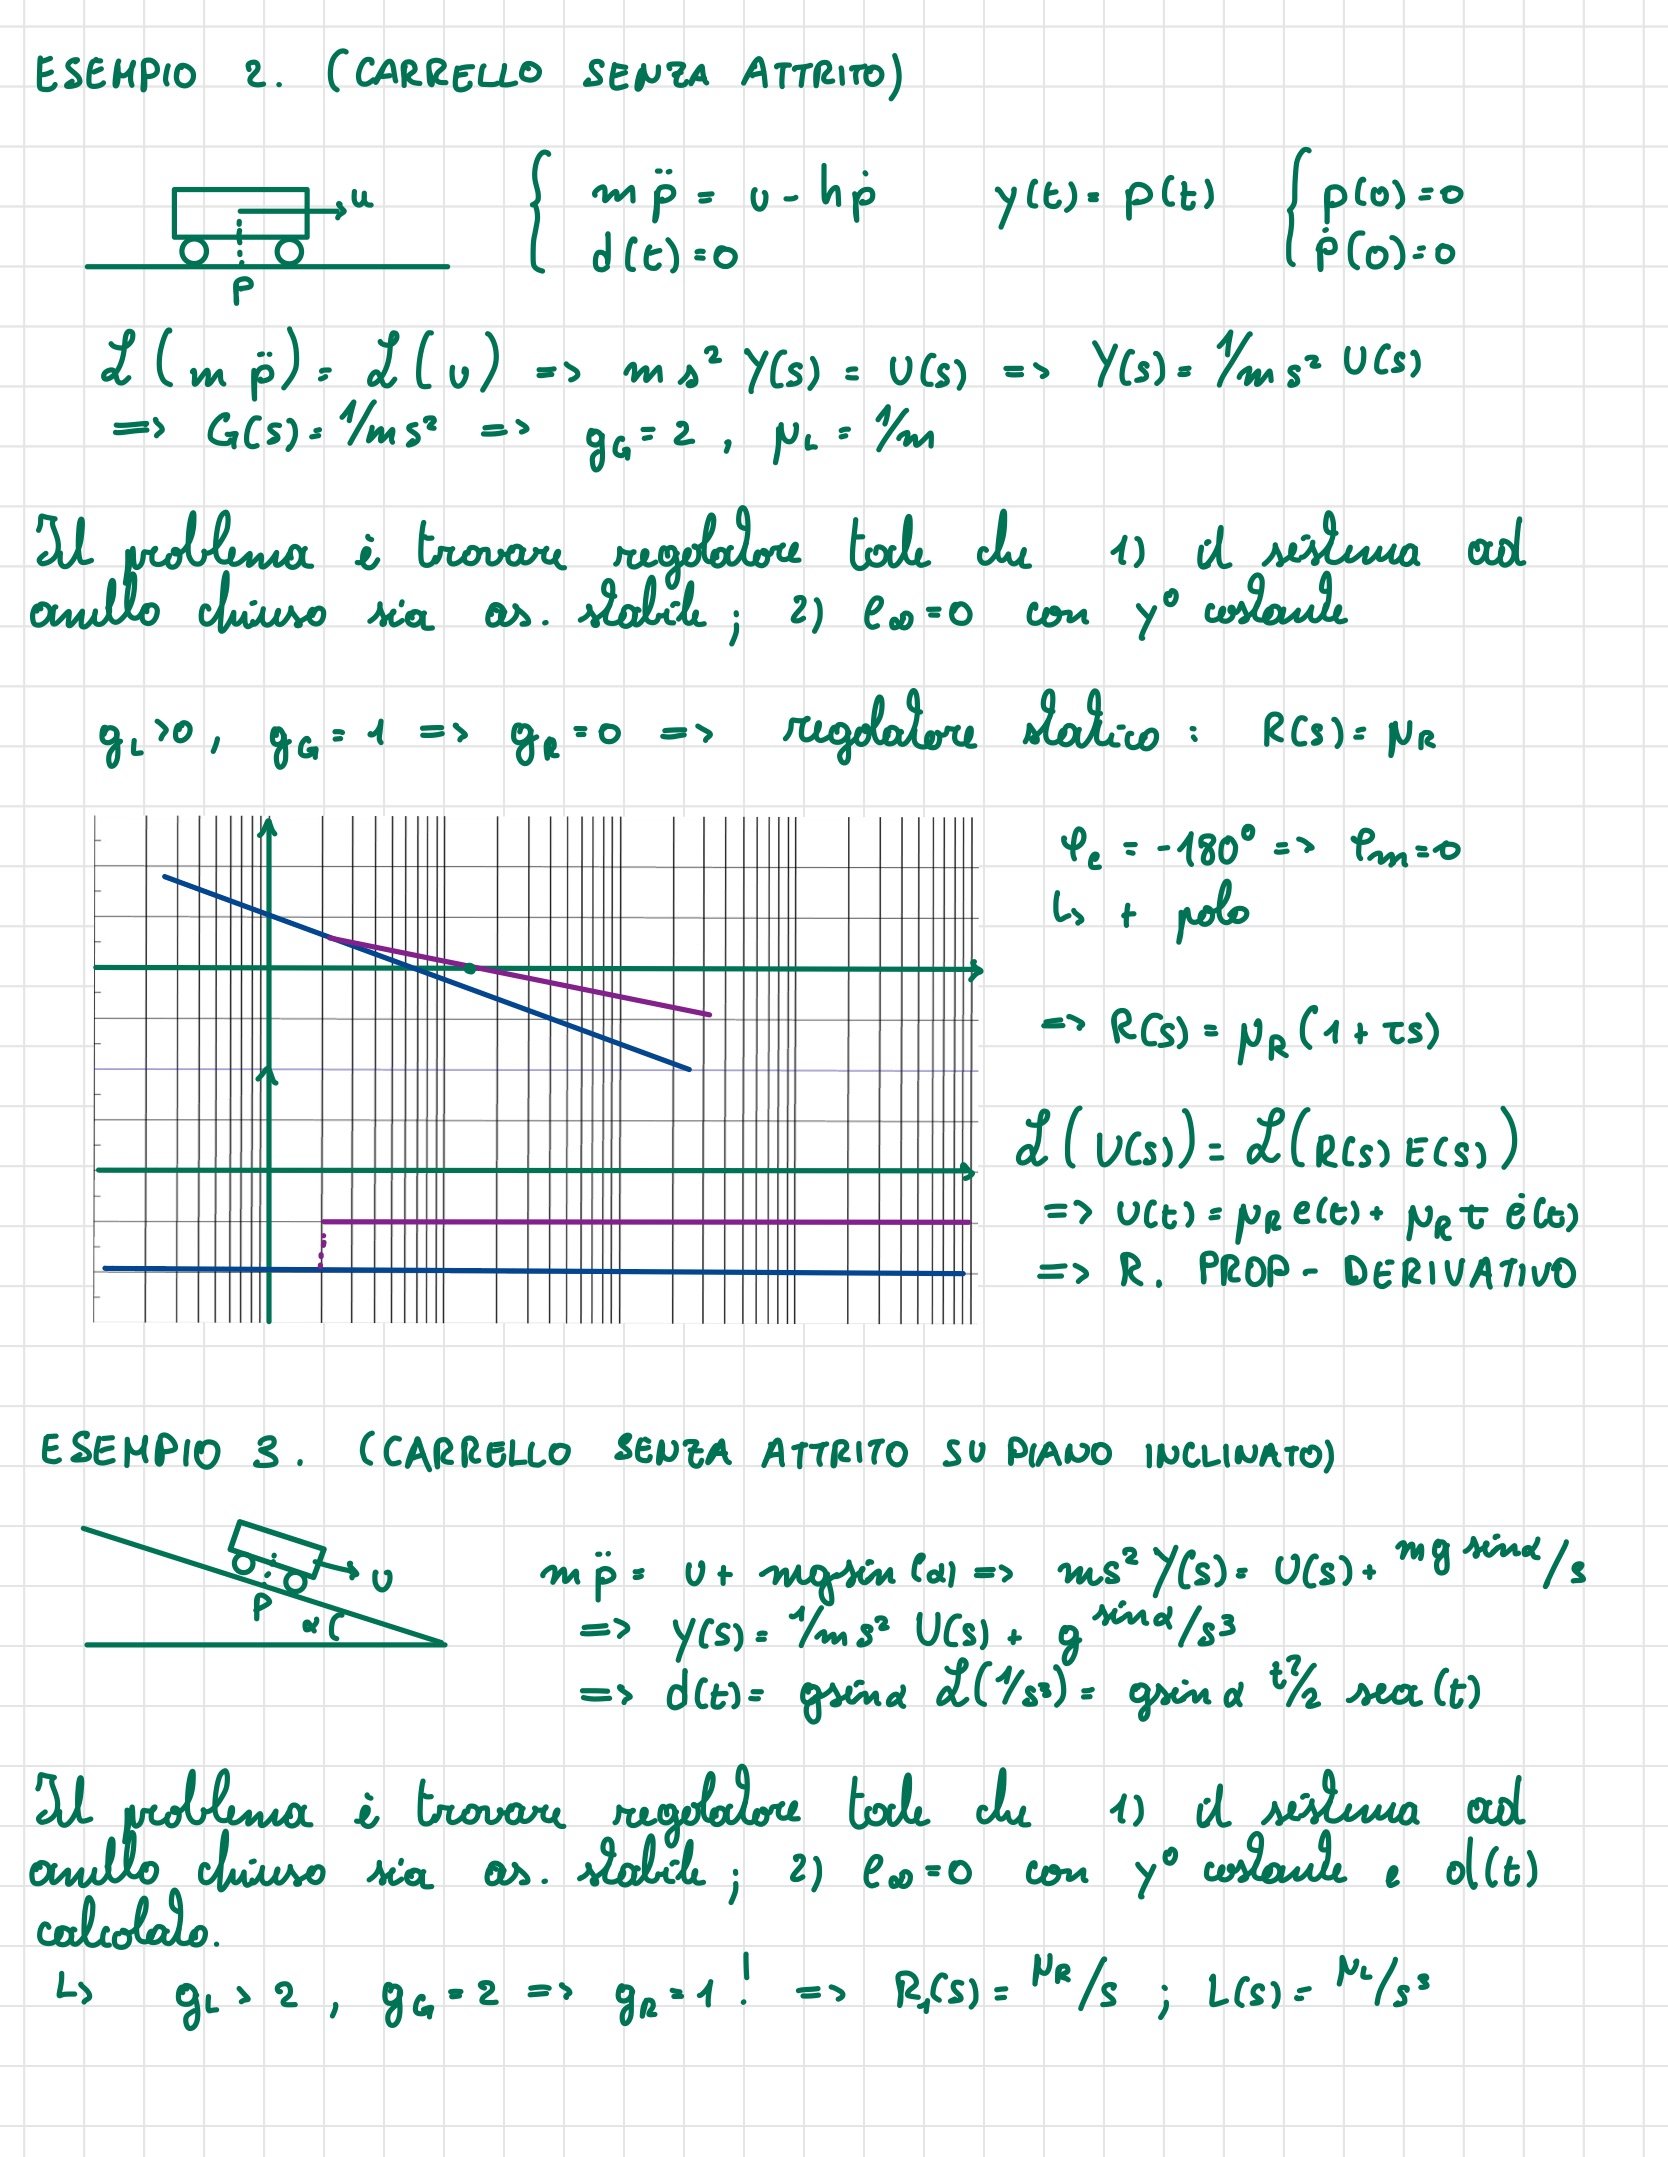 ESEMPIO 2. (CARRELLO SENZA ATTRITO)
u
P
m p̈ = u - hṗ
d(t) = 0
y(t) = p(t)
p(0) = 0
ṗ(0) = 0
ℒ(m p̈) = ℒ(u) => m s² Y(s) = U(s) => Y(s) = 1/ms² U(s)
=> G(s) = 1/ms² => g_G = 2, μ_L = 1/m
Il problema è trovare regolatore tale che 1) il sistema ad
anello chiuso sia as. stabile; 2) e∞=0 con y° costante
g_L > 0, g_G = 1 => g_R = 0 => regolatore statico : R(s) = μ_R
φ_c = -180° => φ_m = 0
↳ + polo
=> R(s) = μ_R (1 + τs)
ℒ(U(s)) = ℒ(R(s) E(s))
=> u(t) = μ_R e(t) + μ_R τ ė(t)
=> R. PROP - DERIVATIVO
ESEMPIO 3. (CARRELLO SENZA ATTRITO SU PIANO INCLINATO)
u
P
α
m p̈ = u + mg sin(α) => ms² Y(s) = U(s) + mg sinα/s
=> Y(s) = 1/ms² U(s) + g sinα/s³
=> d(t) = g sinα ℒ(1/s³) = g sinα t²/2 sca(t)
Il problema è trovare regolatore tale che 1) il sistema ad
anello chiuso sia as. stabile; 2) e∞=0 con y° costante e d(t)
calcolato.
↳ g_L > 2, g_G = 2 => g_R = 1 ! => R₁(s) = μ_R/s ; L(s) = μ_L/s³